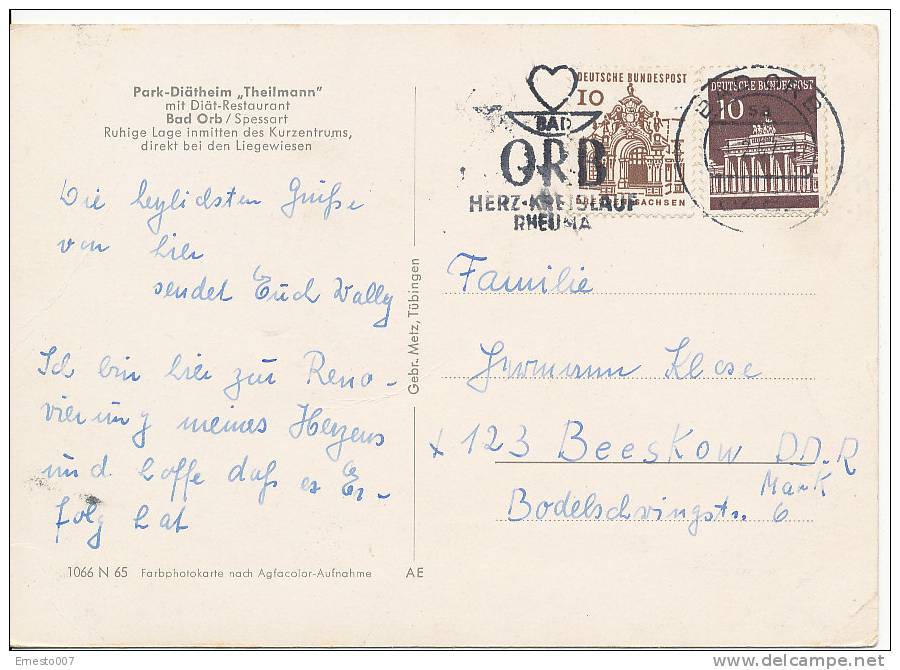 Park-Diätheim „Theilmann"
mit Diät-Restaurant
Bad Orb / Spessart
Ruhige Lage inmitten des Kurzentrums,
direkt bei den Liegewiesen
Die herzlichsten Grüße
von hier
sendet Euch Wally
Ich bin hier zur Reno-
vierung meines Herzens
und hoffe daß es Er-
folg hat
1066 N 65 Farbphotokarte nach Agfacolor-Aufnahme AE
Gebr. Metz, Tübingen
BAD
ORB
HERZ·KREISLAUF
RHEUMA
DEUTSCHE BUNDESPOST
10
SACHSEN
DEUTSCHE BUNDESPOST
10
Familie
Hermann Klose
x 123 Beeskow DDR
Mark
Bodelschwingstr. 6
Ernesto007
www.delcampe.net